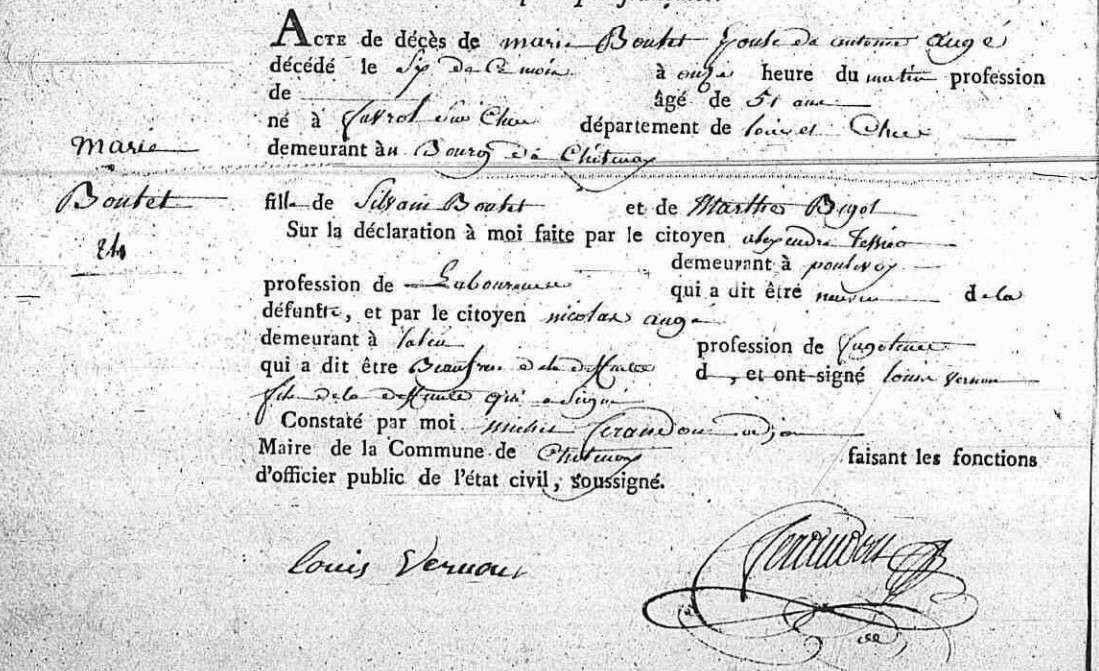 ACTE de décès de marie Boutet épouse de antoine augé
décédé le six de ce mois à onze heure du matin profession
de âgé de 51 ans
né à sur Cher département de loir et Cher
marie
demeurant au Bourg de Chitenay
Boutet
fille de Silvain Boutet et de Marthe Bigot
Sur la déclaration à moi faite par le citoyen alexendre
24
demeurant à pontlevoy
profession de Laboureur qui a dit être neveu de la
défunte, et par le citoyen nicolas auge
demeurant à profession de
qui a dit être Beaufrere de la deffunte d , et ont signé louis vernon
fils de la deffunte qui a signé
Constaté par moi michel Gerandou adjoin
Maire de la Commune de Chitenay faisant les fonctions
d'officier public de l'état civil, soussigné.
louis Vernon
Gerandou